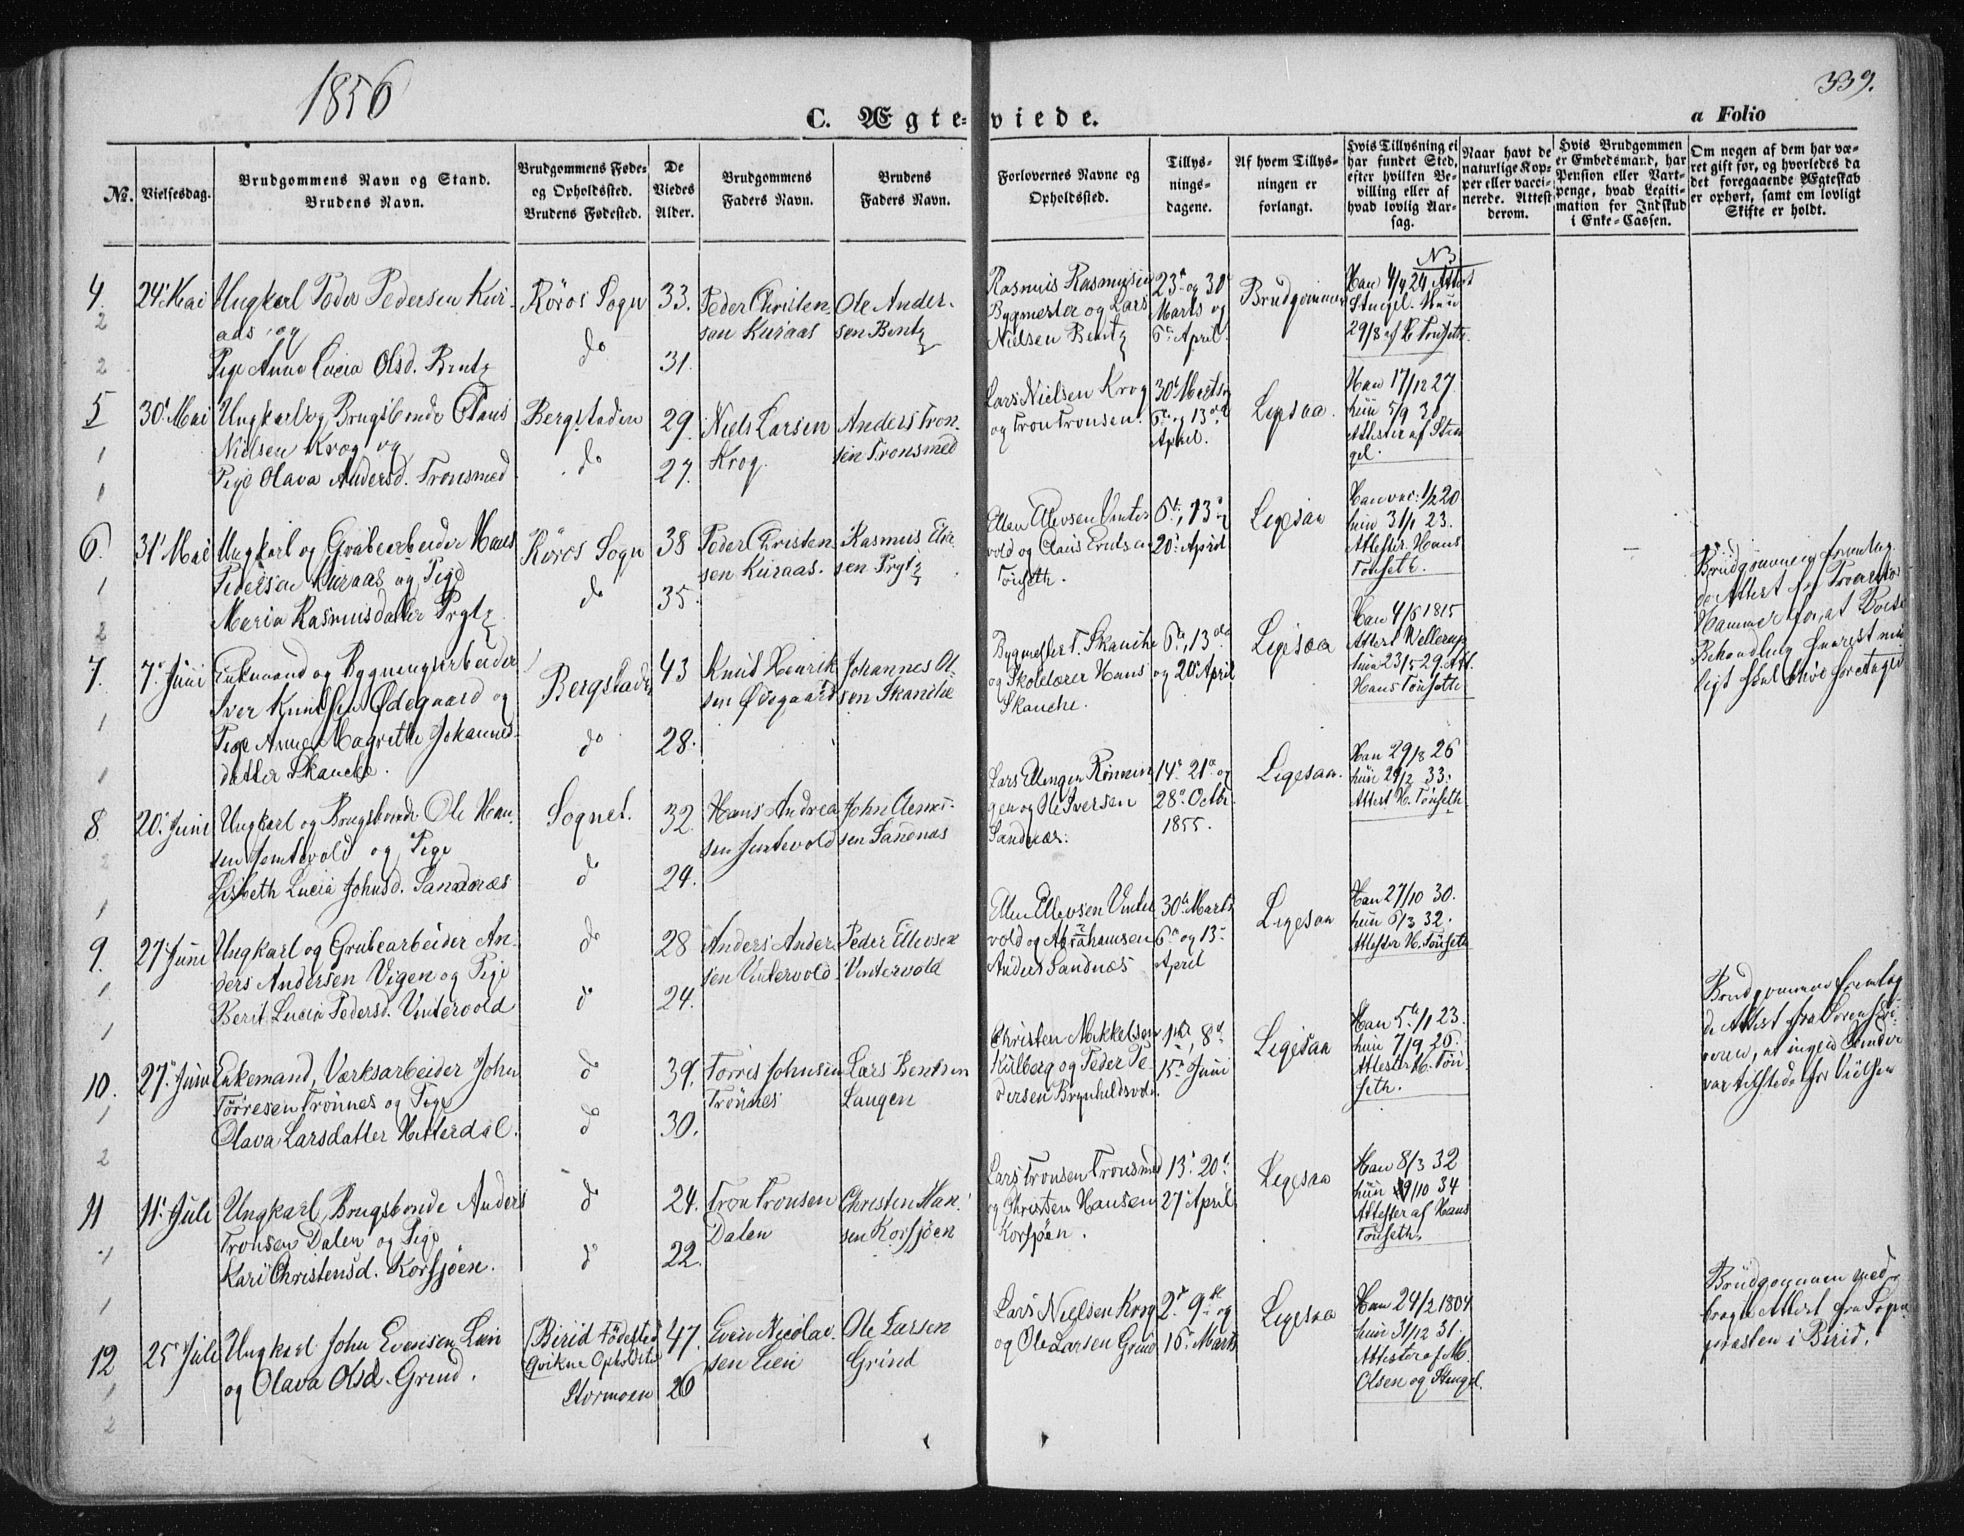 1856
339.
C. Ægte-viede.
a Folio
No.
Vielsesdag.
Brudgommens Navn og Stand.
Brudens Navn.
Brudgommens Føde-
og Opholdssted.
Brudens Fødested.
De
Viedes
Alder.
Brudgommens
Faders Navn.
Brudens
Faders Navn.
Forlovernes Navne og
Opholdssted.
Tillys-
nings-
dagene.
Af hvem Tillys-
ningen er
forlangt.
Hvis Tillysning ei
har fundet Sted,
efter hvilken Be-
villing eller af
hvad lovlig Aar-
sag.
Naar havt de
naturlige Kop-
per eller vacci-
nerede. Attest
derom.
Hvis Brudgommen
er Embedsmand, har
Pension eller Vart-
penge, hvad Legiti-
mation for Indskud
i Enke-Cassen.
Om nogen af dem har væ-
ret gift før, og hvorledes da
det foregaaende Ægteskab
er ophørt, samt om lovligt
Skifte er holdt.
4. 24 Mai
Ungkarl Peder Pedersen Kur-
aas og
Pige Anne Lucia Olsd. Bentz
Röros Sogn
do
33.
31.
Peder Christen-
sen Kuraas
Ole Ander-
sen Bentz
Rasmus Rasmusen
Bygmester og Lars
Nielsen Bentz
23de og 30te
Marts og
6te April.
Brudgommen
Han 4/9 24 Attest
Stengel. Hun
29/8 af H. Tönseth.
5 30 Mai
Ungkarl og Brugsbonde Claus
Nielsen Krog og
Pige Olava Andersd. Tronsmed
Bergstaden
do
29.
27.
Niels Larsen
Krog.
Anders Tron-
sen Tronsmed
Lars Nielsen Krog
og Tron Tronsen.
30 Marts
6te og 13de
April.
Ligesaa.
Han 17/12 27.
hun 5/9 30
Attester af Sten-
gel.
6. 31 Mai
Ungkarl og Grubearbeider Hans
Pedersen Kuraas og Pige
Maria Rasmusdatter Prytz
Röros Sogn
do
38
35.
Peder Christen-
sen Kuraas.
Rasmus Elia-
sen Prytz
Ellen Ellevsen Vinter-
vold og Claus Erichsen
Tönseth.
6te, 13de
20 April
Ligesaa
Han vac: 1/2 20
hun 31/1 23.
Attester Hans
Tönseth.
7. 7 Juni
Enkemand og Bygningsarbeider
Iver Knudsen Ödegaard og
Pige Anne Magrethe Johannes-
datter Skanche.
Bergstaden
do
43
28.
Knud Henrik-
sen Ödegaard
Johannes Ol-
sen Skanche
Bygmester T. Skanche
og Skolelærer Hans
Skanche.
6te, 13de
og 20 April
Ligesaa
Han 4/6 1815
Attest Vellerup
hun 23/5 29. Att.
Hans Tönseth
8 20. Juni
Ungkarl og Brugsbonde Ole Han-
sen Jemtevold og Pige
Lisbeth Lucia Johnsd. Sandnæs
Sognet.
do
32.
24.
Hans Andrea-
sen Jemtevold
John
sen Sandnæs
Lars Ellingen Rönnin-
gen og Ole Iversen
Sandnæs.
14de 21de og
28de Octbr.
1855.
Ligesaa.
Han 29/8 26
hun 29/2 33.
Attest H. Tönseth
9. 27 Juni
Ungkarl og Grubearbeider An-
ders Andersen Vigen og Pige
Berit Lucia Pedersd. Vintervold
do
do
28
24.
Anders Ander-
sen Vintervold
Peder Ellevsen
Vintervold
Ellen Ellevsen Vinter-
vold og Abrahamsen
Anders Sandnæs
30te Marts
6te og 13
April
Ligesaa
Han 27/10 30.
hun 6/3 32.
Attester H. Tönseth
10. 27. Juni
Enkemand, Værksarbeider John
Törresen Trönnes og Pige
Olava Larsdatter Hitterdal.
do
do
39.
30.
Torris Johnsen
Trönnes
Lars Bentsen
Langen
Christen Mikkelsen
Kulberg og Peder Pe-
dersen Brynhildsvold.
1ste, 8de
15de Juni
Ligesaa
Han 5te/1 23.
hun 7/9 26.
Attester H. Tön-
seth.
Brudgommen fremlag-
de Attest fra
var tilstede for Vielsen
11 11. Juli
Ungkarl, Brugsbonde Anders
Tronsen Dalen og Pige
Kari Christensd. Korssjöen.
do
do
24.
22.
Tron Tronsen
Dalen
Christen Han-
sen Korssjöen
Lars Tronsen Tronsmed
og Christen Hansen
Korssjöen.
13. 20de
27 April
Ligesaa
Han 8/3 32
hun 29/10 34
Attester af Hans
Tönseth.
12 25 Juli
Ungkarl John Evensen Lien
og Olava Olsd. Grind.
Birid Födested
Qvikne Opholdsted
Stormoen
47.
26
Even Nicolai-
sen Lien
Ole Larsen
Grind
Lars Nielsen Krog
og Ole Larsen Grind
2de 9de og
16. Marts
Ligesaa
Han 24/2 1804
hun 31/12 31.
Attester af M.
Olsen og Stengel.
Brudgommen med-
bragte Attest fra Sogne-
præsten i Birid.